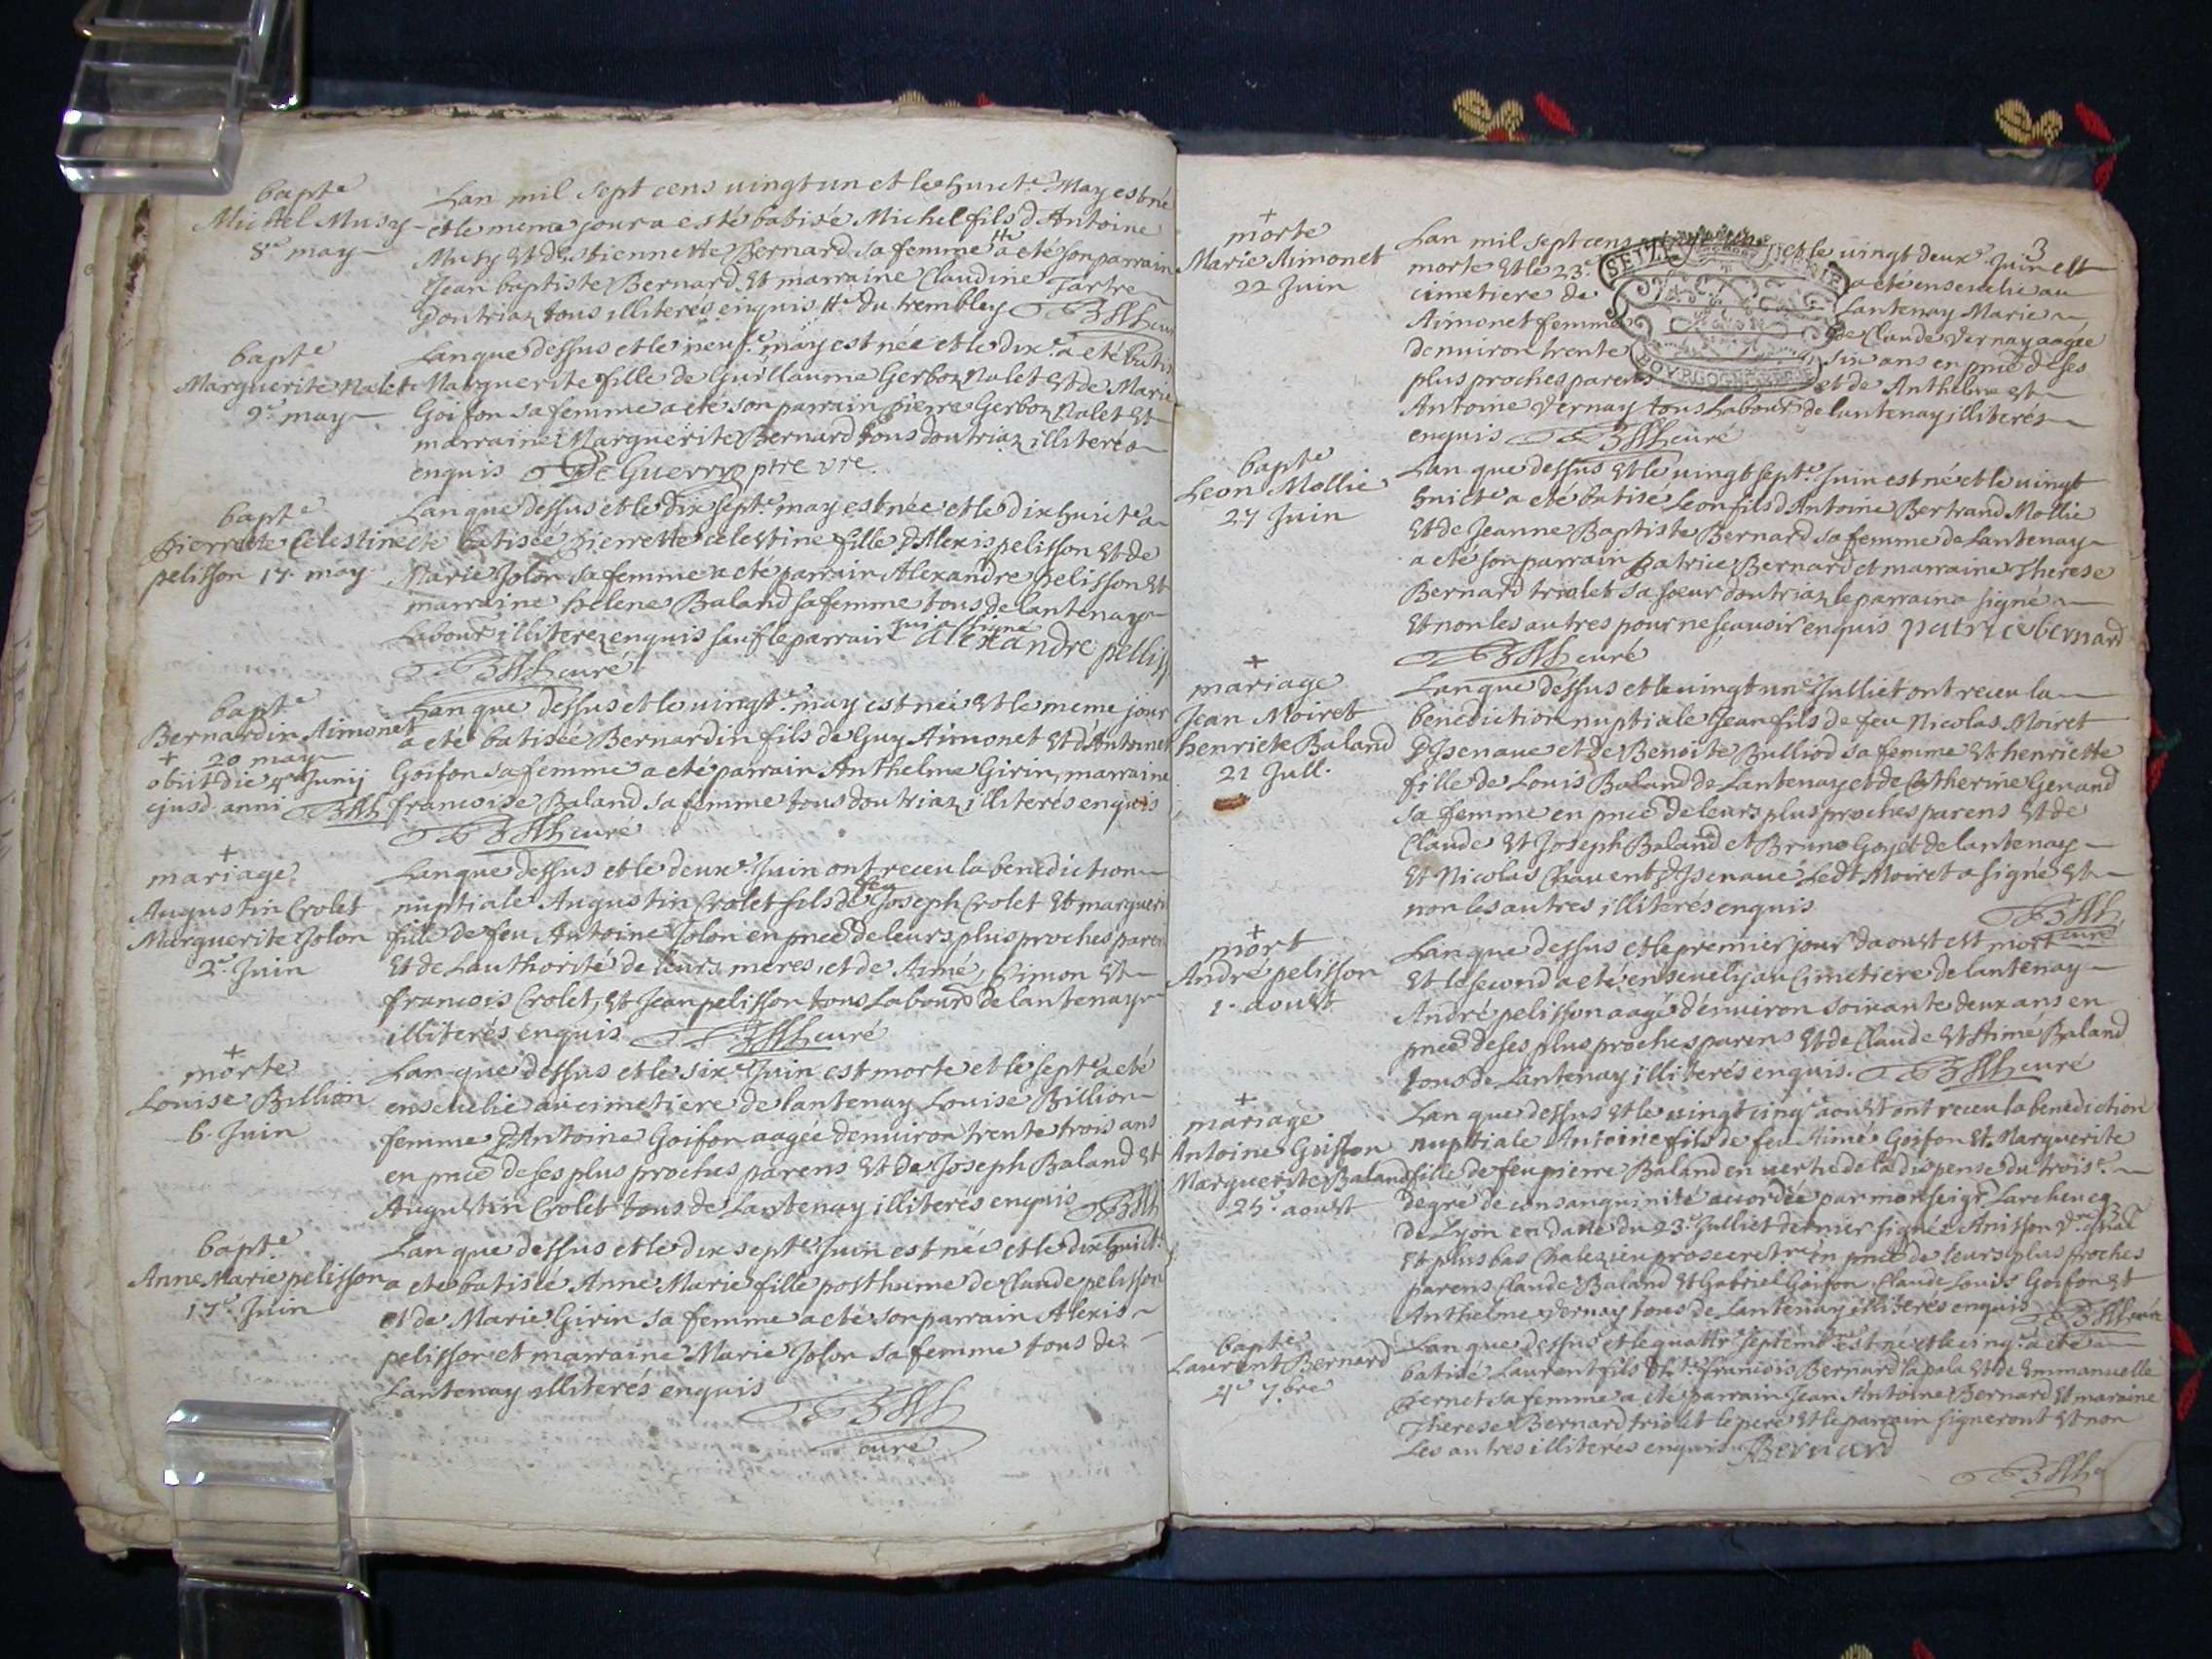 bapt.e
Michel Musy
8.e may
Lan mil sept cens uingt un et le huict.e May est né
et le meme jour a esté batisé Michel fils d Antoine
Musy et d Estiennette Bernard sa femme a eté son parrain
Jean baptiste Bernard et marraine Claudine Tartre
Doutriaz tous illiterés enquis du trembley
bapt.e
Marguerite Nalet
9.e may
Lan que dessus et le neuf.e may est née et le dix.e a eté batis
Marguerite fille de Guillaume Gerboz Nalet et de Marie
Goifon sa femme a eté son parrain pierre Gerboz Nalet et
marraine Marguerite Bernard tous doutriaz illiterés
enquis De Guerry ptre vre.
bapt.e
pierrette Celestine
pelisson 17. may
Lan que dessus et le dix sept.e may est née et le dix huict.e a
eté batisée pierrette celestine fille d Alexis pelisson et de
Marie Jolon sa femme a eté parrain Alexandre pelisson et
marraine helene Baland sa femme tous de lantenay
Labour.s illiterez enquis sauf le parrain qui a signé alexandre pelliss
curé
bapt.e
Bernardin Aimonet
+ 20 may
obiit die 4.a Junij
ejusd. anni
Lan que dessus et le uingt.e may est né et le meme jour
a eté batisée Bernardin fils de Guy Aimonet et d Antoinet
Goifon sa femme a eté parrain Anthelme Girin, marraine
francoise Baland sa femme tous doutriaz illiterés enquis
curé
+
mariage
Augustin Crolet
Marguerite Jolon
2.e Juin
Lan que dessus et le deux.e Juin ont receu la benediction
nuptiale Augustin Crolet fils de feu Joseph Crolet et margueri
fille de feu Antoine Jolon en pnce de leurs plus proches paren
et de Lauthorité de leurs meres, et de Aimé, Simon et
francois Crolet, et Jean pelisson tous Labour.s de lantenay
illiterés enquis curé
+
morte
Louise Billion
6. Juin
Lan que dessus et le six.e Juin est morte et le sept.e a eté
enseuelie au cimetiere de lantenay Louise Billion
femme d Antoine Goifon aagée denuiron trente trois ans
en pnce de ses plus proches parens et de Joseph Baland et
Augustin Crolet tous de Lantenay illiterés enquis
bapt.e
Anne Marie pelisson
17.e Juin
Lan que dessus et le dix sept.e Juin est née et le dix huict.e
a eté batisée Anne Marie fille posthume de Claude pelisson
et de Marie Girin sa femme a eté son parrain Alexis
pelisson et marraine Marie Jolon sa femme tous de
Lantenay illiterés enquis
curé
3
+
morte
Marie Aimonet
22 Juin
Lan mil sept cens et le uingt deux.e Juin est
morte et le 23.e a eté enseuelie au
cimetiere de Lantenay Marie
Aimonet femme de Claude Vernay aagée
denuiron trente six ans en pnce de ses
plus proches parens et de Anthelme et
Antoine Vernay tous Labour.s de lantenay illiterés
enquis curé
bapt.e
Leon Mollie
27 Juin
Lan que dessus et le uingt sept.e Juin est né et le uingt
huict.e a eté batisé Leon fils d Antoine Bertrand Mollie
et de Jeanne Baptiste Bernard sa femme de Lantenay
a eté son parrain Patrice Bernard et marraine Therese
Bernard triolet sa soeur doutriaz le parrain a signé
et non les autres pour ne scauoir enquis patrice bernard
curé
+
mariage
Jean Moiret
henriete Baland
21 Jull.
Lan que dessus et le uingt un.e Julliet ont receu la
benediction nuptiale Jean fils de feu Nicolas Moiret
d Isenaue et de Benoite Bulliod sa femme et henriette
fille de Louis Baland de Lantenay et de Catherine Genand
sa femme en pnce de leurs plus proches parens et de
Claude et Joseph Baland et Bruno Goyet de lantenay
et Nicolas Chauent d Isenaue Ledt Moiret a signé et
non les autres illiterés enquis
curé
+
mort
André pelisson
1. aoust
Lan que dessus et le premier jour daoust est mort
et le second a eté enseuely au Cimetiere de lantenay
André pelisson aagé denuiron soixante deux ans en
pnce de ses plus proches parens et de Claude et Aimé Baland
tous de Lantenay illiterés enquis. curé
+
mariage
Antoine Goiffon
Marguerite Baland
25.e aoust
Lan que dessus et le uingt cinq.e aoust ont receu la benediction
nuptiale Antoine fils de feu Aimé Goifon et Marguerite
fille de feu pierre Baland en uertu de la dispense du trois.e
degré de consanguinité accordée par monseigr Larcheueq
de Lyon en datte du 23.e Julliet dernier signée Anisson
et plus bas en pnce de leurs plus proches
parens Claude Baland et Gabriel Goifon, Claude Louis Goifon et
Anthelme Vernay tous de Lantenay illiterés enquis curé
bapt.e
Laurent Bernard
4.e 7.bre
Lan que dessus et le quattr.e septemb.re est né et le cinq.e a eté
batisé Laurent fils d francois Bernard lapala et de Emmanuelle
Bernet sa femme a eté parrain Jean Antoine Bernard et maraine
Therese Bernard triolet le pere et le parrain signeront et non
Les autres illiteres enquis Bernard